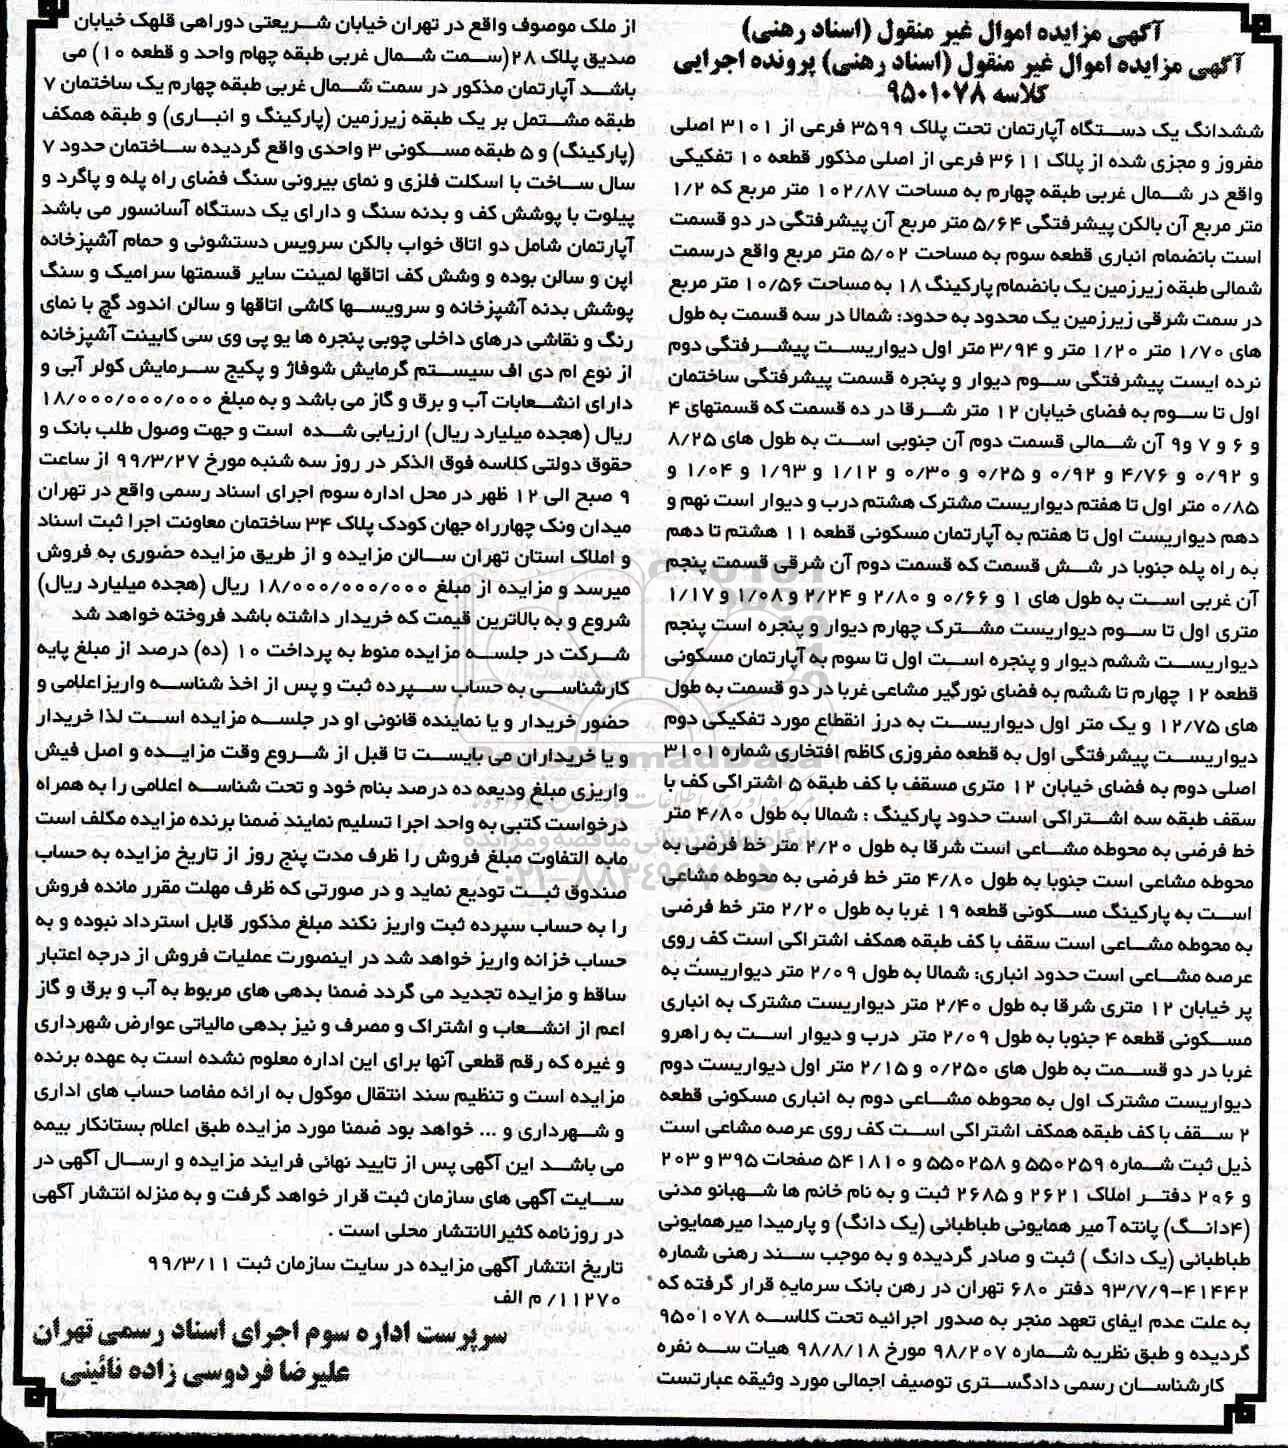 آگهی مزایده اموال غیر منقول (اسناد رهنی)
آگهی مزایده اموال غیر منقول (اسناد رهنی) پرونده اجرایی
کلاسه ۹۵۰۱۰۷۸
ششدانگ یک دستگاه آپارتمان تحت پلاک ۳۵۹۹ فرعی از ۳۱۰۱ اصلی
مفروز و مجزی شده از پلاک ۳۶۱۱ فرعی از اصلی مذکور قطعه ۱۰ تفکیکی
واقع در شمال غربی طبقه چهارم به مساحت ۱۰۲/۸۷ متر مربع که ۱/۲
متر مربع آن بالکن پیشرفتگی ۵/۶۴ متر مربع آن پیشرفتگی در دو قسمت
است بانضمام انباری قطعه سوم به مساحت ۵/۰۲ متر مربع واقع درسمت
شمالی طبقه زیرزمین یک بانضمام پارکینگ ۱۸ به مساحت ۱۰/۵۶ متر مربع
در سمت شرقی زیرزمین یک محدود به حدود: شمالا در سه قسمت به طول
های ۱/۷۰ متر ۱/۲۰ متر و ۳/۹۴ متر اول دیواریست پیشرفتگی دوم
نرده ایست پیشرفتگی سوم دیوار و پنجره قسمت پیشرفتگی ساختمان
اول تا سوم به فضای خیابان ۱۲ متر شرقا در ده قسمت که قسمتهای ۴
و ۶ و ۷ و۹ آن شمالی قسمت دوم آن جنوبی است به طول های ۸/۲۵
و ۰/۹۲ و ۴/۷۶ و ۰/۹۲ و ۰/۲۵ و ۰/۳۰ و ۱/۱۲ و ۱/۹۳ و ۱/۰۴ و
۰/۸۵ متر اول تا هفتم دیواریست مشترک هشتم درب و دیوار است نهم و
دهم دیواریست اول تا هفتم به آپارتمان مسکونی قطعه ۱۱ هشتم تا دهم
به راه پله جنوبا در شش قسمت که قسمت دوم آن شرقی قسمت پنجم
آن غربی است به طول های ۱ و ۰/۶۶ و ۲/۸۰ و ۲/۲۴ و ۱/۰۸ و ۱/۱۷
متری اول تا سوم دیواریست مشترک چهارم دیوار و پنجره است پنجم
دیواریست ششم دیوار و پنجره است اول تا سوم به آپارتمان مسکونی
قطعه ۱۲ چهارم تا ششم به فضای نورگیر مشاعی غربا در دو قسمت به طول
های ۱۲/۷۵ و یک متر اول دیواریست به درز انقطاع مورد تفکیکی دوم
دیواریست پیشرفتگی اول به قطعه مفروزی کاظم افتخاری شماره ۳۱۰۱
اصلی دوم به فضای خیابان ۱۲ متری مسقف با کف طبقه ۵ اشتراکی کف با
سقف طبقه سه اشتراکی است حدود پارکینگ : شمالا به طول ۴/۸۰ متر
خط فرضی به محوطه مشاعی است شرقا به طول ۲/۲۰ متر خط فرضی به
محوطه مشاعی است جنوبا به طول ۴/۸۰ متر خط فرضی به محوطه مشاعی
است به پارکینگ مسکونی قطعه ۱۹ غربا به طول ۲/۲۰ متر خط فرضی
به محوطه مشاعی است سقف با کف طبقه همکف اشتراکی است کف روی
عرصه مشاعی است حدود انباری: شمالا به طول ۲/۰۹ متر دیواریست به
پر خیابان ۱۲ متری شرقا به طول ۲/۴۰ متر دیواریست مشترک به انباری
مسکونی قطعه ۴ جنوبا به طول ۲/۰۹ متر درب و دیوار است به راهرو
غربا در دو قسمت به طول های ۰/۲۵۰ و ۲/۱۵ متر اول دیواریست دوم
دیواریست مشترک اول به محوطه مشاعی دوم به انباری مسکونی قطعه
۲ سقف با کف طبقه همکف اشتراکی است کف روی عرصه مشاعی است
ذیل ثبت شماره ۵۵۰۲۵۹ و ۵۵۰۲۵۸ و ۵۴۱۸۱۰ صفحات ۳۹۵ و ۲۰۳
و ۲۹۶ دفتر املاک ۲۶۲۱ و ۲۶۸۵ ثبت و به نام خانم ها شهبانو مدنی
(۴دانگ) پانته آ میر همایونی طباطبائی (یک دانگ) و پارمیدا میرهمایونی
طباطبائی (یک دانگ ) ثبت و صادر گردیده و به موجب سند رهنی شماره
۴۱۴۴۲-۹۳/۷/۹ دفتر ۶۸۰ تهران در رهن بانک سرمایه قرار گرفته که
به علت عدم ایفای تعهد منجر به صدور اجرائیه تحت کلاسه ۹۵۰۱۰۷۸
گردیده و طبق نظریه شماره ۹۸/۲۰۷ مورخ ۹۸/۸/۱۸ هیات سه نفره
کارشناسان رسمی دادگستری توصیف اجمالی مورد وثیقه عبارتست
از ملک موصوف واقع در تهران خیابان شریعتی دوراهی قلهک خیابان
صدیق پلاک ۲۸(سمت شمال غربی طبقه چهام واحد و قطعه ۱۰) می
باشد آپارتمان مذکور در سمت شمال غربی طبقه چهارم یک ساختمان ۷
طبقه مشتمل بر یک طبقه زیرزمین (پارکینگ و انباری) و طبقه همکف
(پارکینگ) و ۵ طبقه مسکونی ۳ واحدی واقع گردیده ساختمان حدود ۷
سال ساخت با اسکلت فلزی و نمای بیرونی سنگ فضای راه پله و پاگرد و
پیلوت با پوشش کف و بدنه سنگ و دارای یک دستگاه آسانسور می باشد
آپارتمان شامل دو اتاق خواب بالکن سرویس دستشوئی و حمام آشپزخانه
اپن و سالن بوده و وشش کف اتاقها لمینت سایر قسمتها سرامیک و سنگ
پوشش بدنه آشپزخانه و سرویسها کاشی اتاقها و سالن اندود گچ با نمای
رنگ و نقاشی درهای داخلی چوبی پنجره ها یو پی وی سی کابینت آشپزخانه
از نوع ام دی اف سیستم گرمایش شوفاژ و پکیج سرمایش کولر آبی و
دارای انشعابات آب و برق و گاز می باشد و به مبلغ ۱۸/۰۰۰/۰۰۰/۰۰۰
ریال (هجده میلیارد ریال) ارزیابی شده است و جهت وصول طلب بانک و
حقوق دولتی کلاسه فوق الذکر در روز سه شنبه مورخ ۹۹/۳/۲۷ از ساعت
۹ صبح الی ۱۲ ظهر در محل اداره سوم اجرای اسناد رسمی واقع در تهران
میدان ونک چهارراه جهان کودک پلاک ۳۴ ساختمان معاونت اجرا ثبت اسناد
و املاک استان تهران سالن مزایده و از طریق مزایده حضوری به فروش
میرسد و مزایده از مبلغ ۱۸/۰۰۰/۰۰۰/۰۰۰ ریال (هجده میلیارد ریال)
شروع و به بالاترین قیمت که خریدار داشته باشد فروخته خواهد شد
شرکت در جلسه مزایده منوط به پرداخت ۱۰ (ده) درصد از مبلغ پایه
کارشناسی به حساب سپرده ثبت و پس از اخذ شناسه واریزاعلامی و
حضور خریدار و یا نماینده قانونی او در جلسه مزایده است لذا خریدار
و یا خریداران می بایست تا قبل از شروع وقت مزایده و اصل فیش
واریزی مبلغ ودیعه ده درصد بنام خود و تحت شناسه اعلامی را به همراه
درخواست کتبی به واحد اجرا تسلیم نمایند ضمنا برنده مزایده مکلف است
مابه التفاوت مبلغ فروش را ظرف مدت پنج روز از تاریخ مزایده به حساب
صندوق ثبت تودیع نماید و در صورتی که ظرف مهلت مقرر مانده فروش
را به حساب سپرده ثبت واریز نکند مبلغ مذکور قابل استرداد نبوده و به
حساب خزانه واریز خواهد شد در اینصورت عملیات فروش از درجه اعتبار
ساقط و مزایده تجدید می گردد ضمنا بدهی های مربوط به آب و برق و گاز
اعم از انشعاب و اشتراک و مصرف و نیز بدهی مالیاتی عوارض شهرداری
و غیره که رقم قطعی آنها برای این اداره معلوم نشده است به عهده برنده
مزایده است و تنظیم سند انتقال موکول به ارائه مفاصا حساب های اداری
و شهرداری و ... خواهد بود ضمنا مورد مزایده طبق اعلام بستانکار بیمه
می باشد این آگهی پس از تایید نهائی فرایند مزایده و ارسال آگهی در
سایت آگهی های سازمان ثبت قرار خواهد گرفت و به منزله انتشار آگهی
در روزنامه کثیرالانتشار محلی است .
تاریخ انتشار آگهی مزایده در سایت سازمان ثبت ۹۹/۳/۱۱
۱۱۲۷۰/ م الف
سرپرست اداره سوم اجرای اسناد رسمی تهران
علیرضا فردوسی زاده نائینی